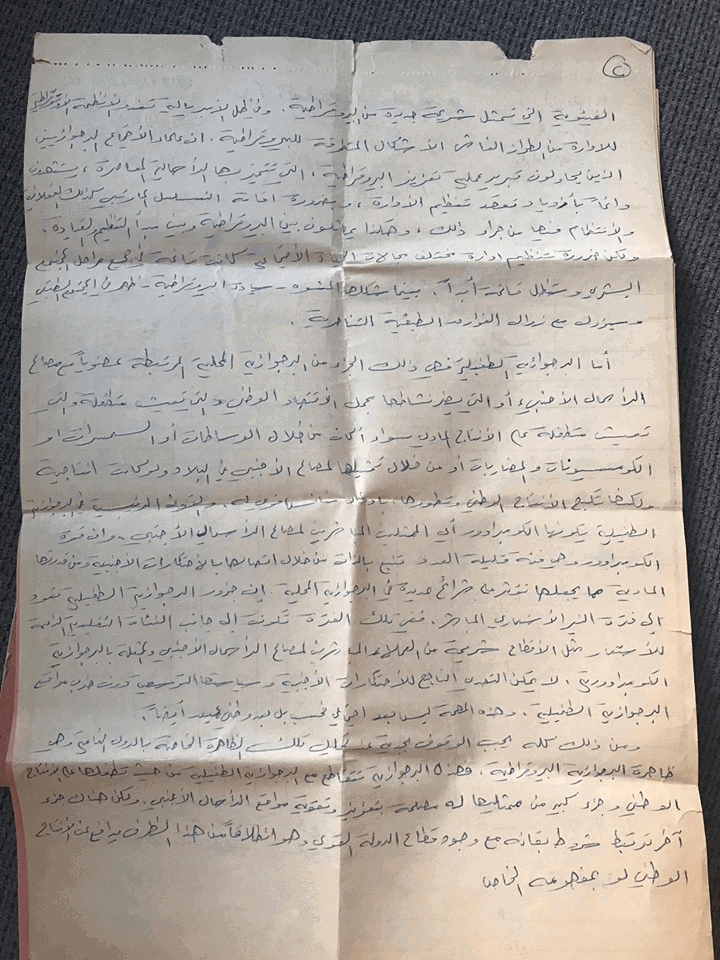 ٢
الفئوية التي تمثل شريحة جديدة من البروقراطية. وفي ظل الأمبريالية تغدو الأنظمة الأوتوقراطية
للإدارة من الطراز الفاشي الأشكال المتطرفة للبيروقراطية. ان علماء الاجتماع البرجوازيين
الذين يحاولون تبرير عملية تعزيز البروقراطية، التي تتميز بها الرأسمالية المعاصرة، يستشهدون
دائماً بـ تعقد تنظيم الأدارة، وبضرورة اقامة التسلسل المراتبي كذلك العقلانية
والأنتظام فيها من جراء ذلك، وهكذا يماثلون بين البروقراطية وبين مبدأ التنظيم والقيادة.
ولكن ضرورة تنظيم ادارة مختلف مجالات الحياة الأجتماعية كانت قائمة في جميع مراحل المجتمع
البشري وستظل قائمة أبداً. بينما شكلها المشوه - سيادة البروقراطية - ظهر في المجتمع الطبقي
وسيزول مع زوال الفوارق الطبقية التناحرية.
أما البرجوازية الطفيلية فهي ذلك الجزء من البرجوازية المحلية المرتبطة عضوياً مع مصالح
الرأسمال الأجنبي، أو التي يضر نشاطها بمجمل الاقتصاد الوطني والتي تعيش متطفلة والتي
تعيش متطفلة على الأنتاج المادي سواء أكانت من خلال الوساطات أو السمسرات او
الكومسيونات والمضاربات أو من خلال تمثيلها لمصالح الأجنبي في البلاد ولو كانت انتاجية
ولكنها تكبح الأنتاج الوطني وتطورها، والقوة الرئيسية في البرجوازية
الطفيلية يكونها الكومبرادور أي الممثلين المباشرين لمصالح الرأسمال الأجنبي. وان قوة
الكومبرادور وهي فئة قليلة العدد تنبع بالذات من خلال اتصالها بالأحتكارات الأجنبية ومن قدرتها
المادية مما يجعلها تؤثر على شرائح جديدة في البرجوازية المحلية. ان جذور البرجوازية الطفيلية تعود
إلى فترة السير الأستعماري المباشر. ففي تلك الفترة تكونت إلى جانب الفئات التقليدية الداعمة
للأستعمار مثل الأقطاع شريحة من العملاء المباشرين لمصالح الرأسمال الأجنبي والممثلة بالبرجوازية
الكومبرادورية. لا يمكن التصدي الناجح للأحتكارات الأجنبية وسياستها التوسعية دون ضرب مواقع
البرجوازية الطفيلية. وهذه المهمة ليس بعد اجتماعي فحسب بل بعد وطني أيضاً.
ومن ذلك كله يجب الوقوف بجدية عند تحليل تلك الظاهرة الخاصة بالدول النامية وهو
ظاهرة البرجوازية البروقراطية. فهذه البرجوازية تتقاطع مع البرجوازية الطفيلية من حيث تطفلها على الأنتاج
الوطني وجزء كبير من ممثليها له مصلحة بتعزيز وتقوية مواقع الرأسمال الأجنبي. ولكن هناك جزء
آخر ترتبط شروط بقائه مع وجود قطاع الدولة القوي وهو انطلاقاً من هذا الظرف يدافع عن الأنتاج
الوطني لو بمفهومه الخاص